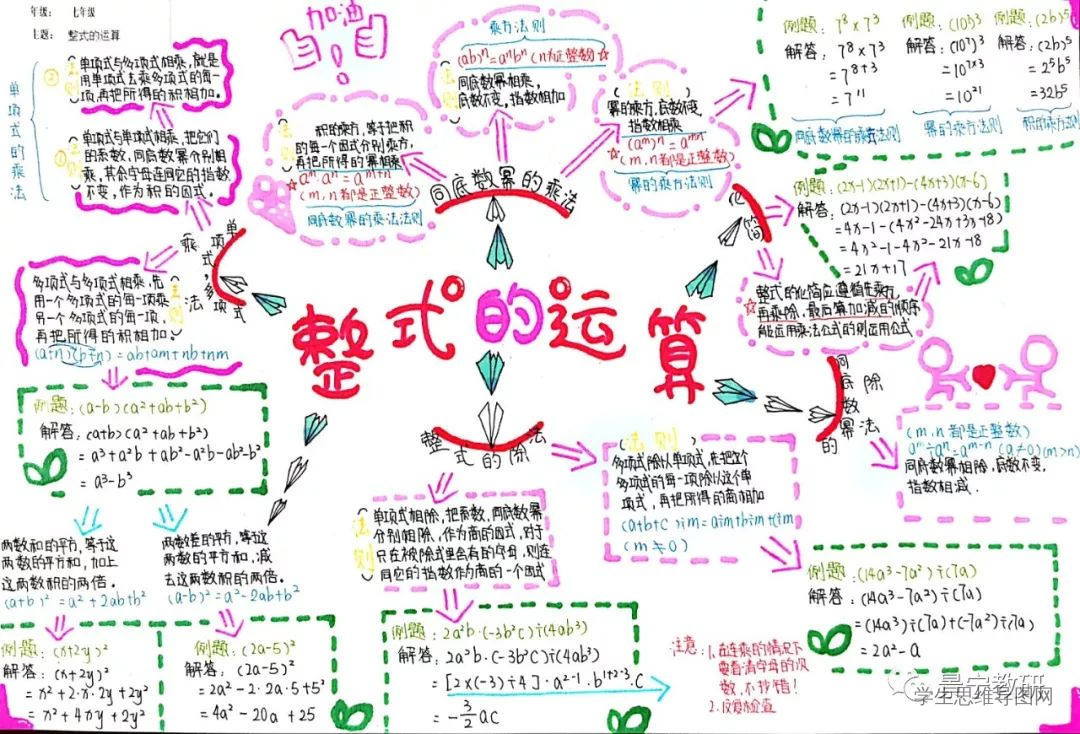 年级: 七年级
主题: 整式的运算
单项式的乘法
②
法则
单项式与多项式相乘,就是
用单项式去乘多项式的每一
项,再把所得的积相加。
①
法则
单项式与单项式相乘,把它们
的系数,同底数幂分别相
乘,其余字母连同它的指数
不变,作为积的因式。
单项式,多项式
乘法
法则
多项式与多项式相乘,先
用一个多项式的每一项乘
另一个多项式的每一项,
再把所得的积相加。
(a+n)(b+m)=ab+am+nb+nm
例题:(a-b)(a²+ab+b²)
解答:(a+b)(a²+ab+b²)
=a³+a²b+ab²-a²b-ab²-b³
=a³-b³
两数和的平方,等于这
两数的平方和,加上
这两数积的两倍。
(a+b)²=a²+2ab+b²
两数差的平方,等于这
两数的平方和,减
去这两数积的两倍。
(a-b)²=a²-2ab+b²
例题:(x+2y)²
解答:(x+2y)²
=x²+2·x·2y+2y²
=x²+4xy+2y²
例题:(2a-5)²
解答:(2a-5)²
=2a²-2·2a·5+5²
=4a²-20a+25
加油
!
法则
积的乘方,等于把积
的每一个因式分别乘方,
再把所得的幂相乘
☆aᵐaⁿ=aᵐ⁺ⁿ
(m,n都是正整数)
同底数幂的乘法法则
乘方法则
(ab)ⁿ=aⁿbⁿ(n为正整数)☆
同底数幂相乘,
底数不变,指数相加
同底数幂的乘法
(法则)
幂的乘方,底数不变,
指数相乘
(aᵐ)ⁿ=aᵐⁿ
☆(m,n都是正整数)
幂的乘方法则
例题:7⁸×7³
解答:7⁸×7³
=7⁸⁺³
=7¹¹
同底数幂的乘法法则
例题:(10⁷)³
解答:(10⁷)³
=10⁷ˣ³
=10²¹
幂的乘方法则
例题:(2b)⁵
解答:(2b)⁵
=2⁵b⁵
=32b⁵
积的乘方法则
化简
例题:(2x-1)(2x+1)-(4x+3)(x-6)
解答:(2x-1)(2x+1)-(4x+3)(x-6)
=4x-1-(4x²-24x+3x-18)
=4x²-1-4x²-21x+18
=21x+17
整式的化简应遵循先乘方,
☆再乘除,最后算加减的顺序
能运用乘法公式的则运用公式
整式的运算
同底数幂的除法
(m,n都是正整数)
aᵐ÷aⁿ=aᵐ⁻ⁿ(a≠0)(m>n)
同底数幂相除,底数不变,
指数相减.
整式的除法
(法则)
多项式除以单项式,先把这个
多项式的每一项除以这个单
项式,再把所得的商相加
(a+b+c)÷m=a÷m+b÷m+c÷m
(m≠0)
例题:(14a³-7a²)÷(7a)
解答:(14a³-7a²)÷(7a)
=(14a³)÷(7a)+(-7a²)÷(7a)
=2a²-a
法则
单项式相除,把系数,同底数幂
分别相除,作为商的因式,对于
只在被除式里含有的字母,则连
同它的指数作为商的一个因式
例题:2a²b·(-3b²c)÷(4ab³)
解答:2a³b·(-3b²c)÷(4ab³)
=[2×(-3)÷4]·a²⁻¹·b¹⁺²⁻³·c
=-3/2ac
注意:1.在连乘的情况下
要看清字母的次
数,不抄错!
2.反复检查
景宁教研
学生思维导图网